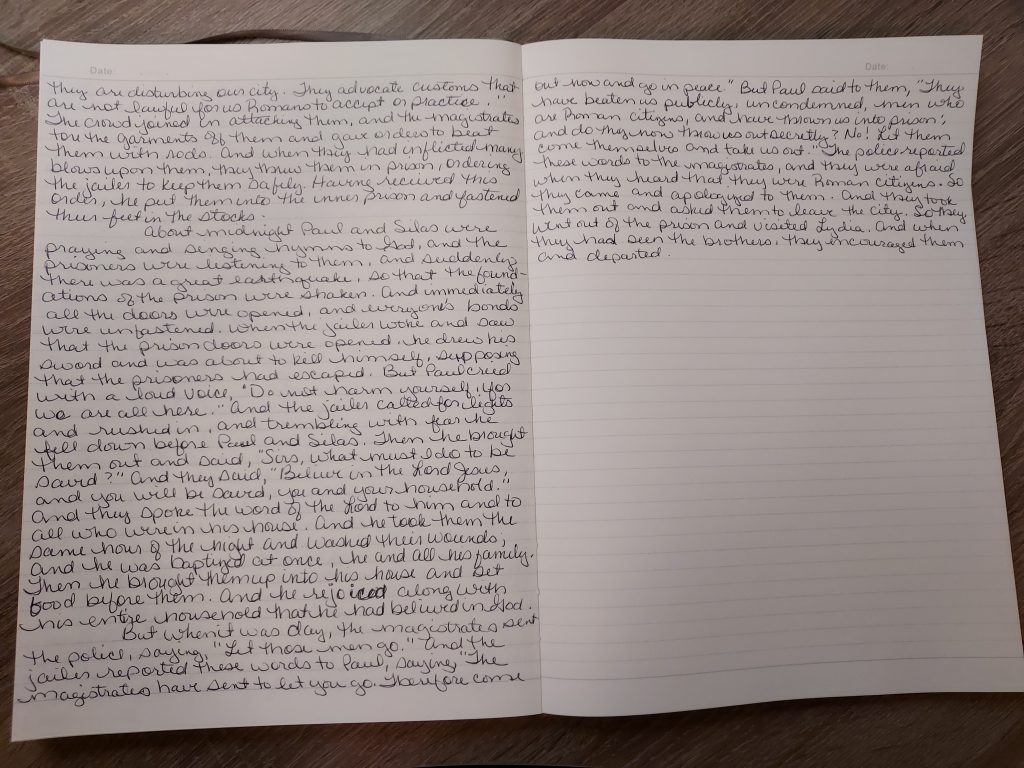 Date:
they are disturbing our city. They advocate customs that
are not lawful for us Romans to accept or practice."
The crowd joined in attacking them, and the magistrates
tore the garments off them and gave orders to beat
them with rods. And when they had inflicted many
blows upon them, they threw them in prison, ordering
the jailer to keep them safely. Having received this
order, he put them into the inner prison and fastened
their feet in the stocks.
About midnight Paul and Silas were
praying and singing hymns to God, and the
prisoners were listening to them, and suddenly
there was a great earthquake, so that the found-
ations of the prison were shaken. And immediately
all the doors were opened, and everyone's bonds
were unfastened. When the jailer woke and saw
that the prison doors were opened, he drew his
sword and was about to kill himself, supposing
that the prisoners had escaped. But Paul cried
with a loud voice, "Do not harm yourself, for
we are all here." And the jailer called for lights
and rushed in, and trembling with fear he
fell down before Paul and Silas. Then he brought
them out and said, "Sirs, what must I do to be
saved?" And they said, "Believe in the Lord Jesus,
and you will be saved, you and your household."
And they spoke the word of the Lord to him and to
all who were in his house. And he took them the
same hour of the night and washed their wounds;
and he was baptized at once, he and all his family.
Then he brought them up into his house and set
food before them. And he rejoiced along with
his entire household that he had believed in God.
But when it was day, the magistrates sent
the police, saying, "Let those men go." And the
jailer reported these words to Paul, saying "The
magistrates have sent to let you go. Therefore come
Date:
out now and go in peace" But Paul said to them, "They
have beaten us publicly, uncondemned, men who
are Roman citizens, and have thrown us into prison;
and do they now throw us out secretly? No! Let them
come themselves and take us out." The police reported
these words to the magistrates, and they were afraid
when they heard that they were Roman citizens. So
they came and apologized to them. And they took
them out and asked them to leave the city. So they
went out of the prison and visited Lydia. And when
they had seen the brothers, they encouraged them
and departed.